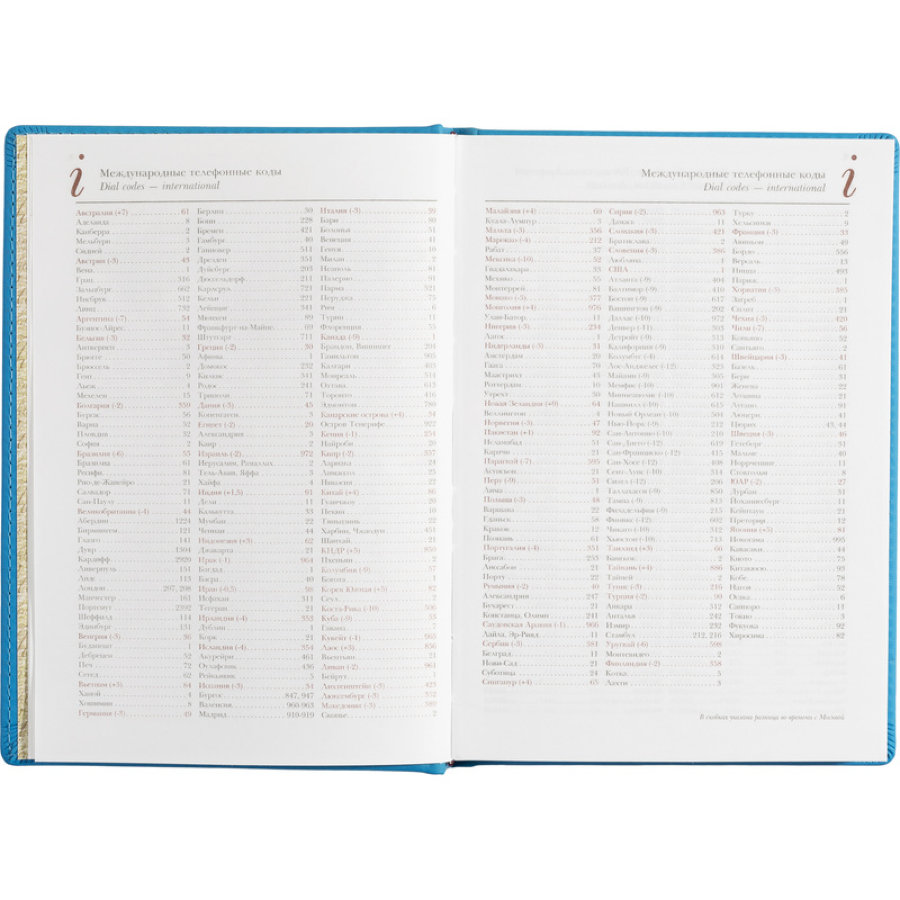 i
Международные телефонные коды
Dial codes — international
Австралия (+7) 61
Аделаида 8
Канберра 2
Мельбурн 3
Сидней 2
Австрия (-3) 43
Вена 1
Грац 316
Зальцбург 662
Инсбрук 512
Линц 732
Аргентина (-7) 54
Буэнос-Айрес 11
Бельгия (-3) 32
Антверпен 3
Брюгге 50
Брюссель 2
Гент 9
Льеж 4
Мехелен 15
Болгария (-2) 359
Бургас 56
Варна 52
Пловдив 32
София 2
Бразилия (-6) 55
Бразилиа 61
Ресифи 81
Рио-де-Жанейро 21
Сальвадор 71
Сан-Паулу 11
Великобритания (-4) 44
Абердин 1224
Бирмингем 121
Глазго 141
Дувр 1304
Кардифф 2920
Ливерпуль 151
Лидс 113
Лондон 207, 208
Манчестер 161
Портсмут 2392
Шеффилд 114
Эдинбург 131
Венгрия (-3) 36
Будапешт 1
Дебрецен 52
Печ 72
Сегед 62
Вьетнам (+5) 84
Ханой 4
Хошимин 8
Германия (-3) 49
Берлин 30
Бонн 228
Бремен 421
Гамбург 40
Ганновер 511
Дрезден 351
Дуйсбург 203
Дюссельдорф 211
Карлсруэ 721
Кельн 221
Лейпциг 341
Мюнхен 89
Франкфурт-на-Майне 69
Штутгарт 711
Греция (-2) 30
Афины 1
Родос 241
Дания (-3) 45
Египет (-2) 20
Александрия 3
Каир 2
Найроби 2
Израиль (-2) 972
Иерусалим, Рамаллах 2
Тель-Авив, Яффа 3
Хайфа 4
Индия (+1,5) 91
Дели 11
Калькутта 33
Мумбаи 22
Ченнаи 44
Индонезия (+3) 62
Джакарта 21
Ирак (-1) 964
Багдад 1
Басра 40
Иран (-0,5) 98
Исфахан 311
Тегеран 21
Ирландия (-4) 353
Дублин 1
Корк 21
Исландия (-4) 354
Рейкьявик 5
Испания (-3) 34
Бургос 847, 947
Валенсия 960-963
Мадрид 910-919
Италия (-3) 39
Бари 80
Болонья 51
Венеция 41
Генуя 10
Милан 2
Неаполь 81
Палермо 91
Парма 521
Перуджа 75
Рим 6
Турин 11
Флоренция 55
Канада (-9)
Брандон, Виннипег 204
Гамильтон 905
Калгари 403
Монреаль 514
Оттава 613
Торонто 416
Эдмонтон 780
Канарские острова (+4) 34
Остров Тенерифе 922
Кения (-1) 254
Кипр (-2) 357
Ларнака 24
Лимассол 25
Никосия 22
Китай (+4) 86
Гуанчжоу 20
Пекин 10
Тяньцзинь 22
Харбин, Чжаодун 451
Шанхай 21
КНДР (+5) 850
Пхеньян 2
Колумбия (-9) 57
Богота 1
Корея Южная (+5) 82
Сеул 2
Коста-Рика (-10) 506
Куба (-9) 53
Гавана 7
Кувейт (-1) 965
Лаос (+3) 856
Вьентьян 21
Ливан (-2) 961
Бейрут 1
Лихтенштейн (-3) 423
Люксембург (-3) 352
Македония (-3) 389
Скопье 2
Международные телефонные коды
Dial codes — international
i
Малайзия (+4) 60
Куала-Лумпур 3
Мальта (-3) 356
Марокко (-4) 212
Рабат 37
Мексика (-10) 52
Гвадалахара 33
Мехико 55
Монтеррей 81
Монако (-3) 377
Монголия (+4) 976
Улан-Батор 11
Нигерия (-3) 234
Лагос 1
Нидерланды (-3) 31
Амстердам 20
Гаага 70
Маастрихт 43
Роттердам 10
Утрехт 30
Новая Зеландия (+9) 64
Веллингтон 4
Норвегия (-3) 47
Пакистан (+1) 92
Исламабад 51
Карачи 21
Парагвай (-7) 595
Асунсьон 21
Перу (-9) 51
Лима 1
Польша (-3) 48
Варшава 22
Гданьск 58
Краков 12
Познань 61
Португалия (-4) 351
Лиссабон 21
Порту 22
Румыния (-2) 40
Бухарест 21
Констанца, Олимп 241
Саудовская Аравия (-1) 966
Сербия (-3) 381
Белград 11
Нови-Сад 21
Суботица 24
Сингапур (+4) 65
Сирия (-2) 963
Дамаск 11
Словакия (-3) 421
Братислава 2
Словения (-3) 386
Любляна 1
США 1
Атланта (-9) 404
Балтимор (-9) 410
Бостон (-9) 617
Вашингтон (-9) 202
Даллас (-10) 972
Денвер (-11) 303
Детройт (-9) 313
Лос-Анджелес (-12) 323
Майами (-9) 305
Мемфис (-10) 901
Миннеаполис (-10) 612
Нашвилл (-10) 615
Новый Орлеан (-10) 504
Нью-Йорк (-9) 212
Сан-Антонио (-10) 210
Сан-Диего (-12) 619
Сан-Франциско (-12) 415
Сан-Хосе (-12) 408
Сент-Луис (-10) 314
Сиэтл (-12) 206
Таллахасси (-9) 850
Тампа (-9) 813
Филадельфия (-9) 215
Финикс (-12) 602
Чикаго (-10) 312
Хьюстон (-10) 713
Таиланд (+3) 66
Бангкок 2
Тайвань (+4) 886
Тайпей 2
Тунис (-3) 216
Турция (-2) 90
Анкара 312
Анталья 242
Измир 232
Стамбул 212, 216
Уругвай (-6) 598
Монтевидео 2
Финляндия (-2) 358
Котка 5
Лахти 3
Турку 2
Хельсинки 9
Франция (-3) 33
Авиньон 49
Бордо 556
Версаль 13
Ницца 493
Париж 1
Хорватия (-3) 385
Загреб 1
Сплит 21
Чехия (-3) 420
Чили (-7) 56
Сантьяго 2
Швейцария (-3) 41
Базель 61
Берн 31
Женева 22
Лозанна 21
Лугано 91
Люцерн 41
Цюрих 43, 44
Швеция (-3) 46
Гетеборг 31
Мальме 40
Норрчепинг 11
Стокгольм 8
ЮАР (-2) 27
Дурбан 31
Йоханнесбург 11
Кейптаун 21
Претория 12
Япония (+5) 81
Иокогама 995
Кавасаки 44
Киото 75
Китакюсю 93
Кобе 78
Нагоя 52
Осака 6
Саппоро 11
Токио 3
Фукуока 92
Хиросима 82
В скобках указана разница во времени с Москвой